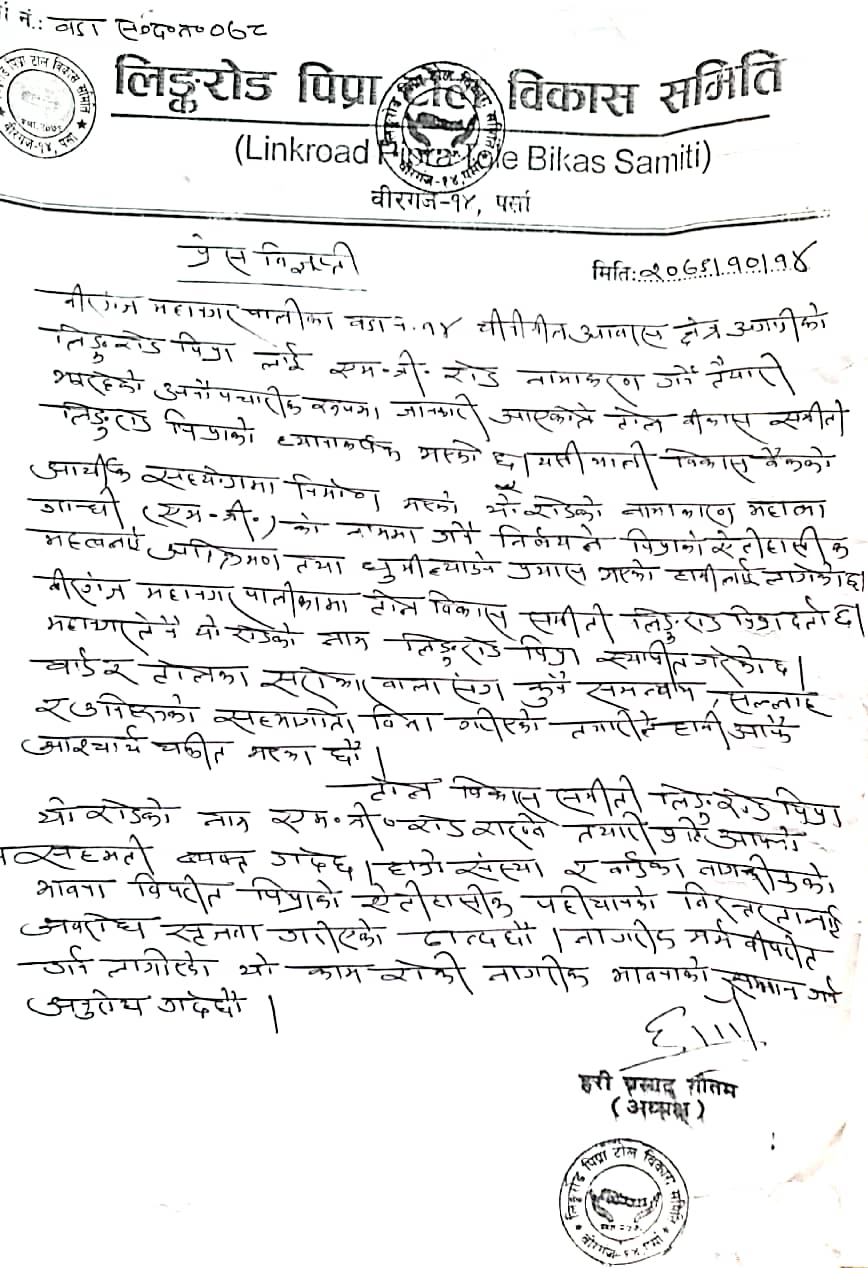 नं.: वडा स०द०न० ०७८
लिङ्करोड पिप्रा टोल विकास समिति
(Linkroad Pipra Tole Bikas Samiti)
वीरगंज-१४, पर्सा
प्रेस विज्ञप्ती
मिति: २०७९।१०।१४
वीरगंज महानगरपालीका वडा न. १४ चीनीमील आवास क्षेत्र अगाडीको
लिङ्करोड पिप्रा लाई एम.जी. रोड नामाकरण गर्ने तैयारी
भइरहेको अनौपचारीक रुपमा जानकारी आएकोले टोल वीकास समीती
लिङ्करोड पिप्राको ध्यानाकर्षक भएको छ। यसीआली विकास बैंकको
आर्थीक सहयोगमा निर्माण भएको यो रोडको नामाकरण महात्मा
गान्धी (एम.जी.) को नाममा गर्ने निर्णयले पिप्राको ऐतीहासीक
महत्वलाई अतिक्रमण तथा धुमील्याउने प्रयास भएको हामीलाई लागेको छ।
वीरगंज महानगरपालीकामा टोल विकास समीती लिङ्करोड पिप्रा दर्ता छ।
महानगरले नै यो रोडको नाम लिङ्करोड पिप्रा स्थापीत गरेको छ।
वार्ड र टोलका सरोकारवाला संग कुनै समन्वय, सल्लाह
र उनिहरुको सहभागीता विना गरीएको तयारीले हामी आफै
आश्चार्य चकीत भएका छौं।
टोल विकास समीती लिङ्करोड पिप्रा
यो रोडको नाम एम.जी. रोड राख्ने तयारी प्रति आफ्नो
असहमती व्यक्त गर्दछ। हाम्रो संस्था र वार्डका नागरीकको
भावना विपरीत पिप्राको ऐतीहासीक पहीचानको निरन्तरतालाई
अवरोध सृजना गरीएको ठान्दछौं। नागरीक मर्म वीपरीत
गर्न लागीएको यो काम रोकी नागरीक भावनाको सम्मान गर्न
अनुरोध गर्दछौं।
हरी प्रसाद गौतम
(अध्यक्ष)
लिङ्करोड पिप्रा टोल विकास समिति
वीरगंज-१४, पर्सा